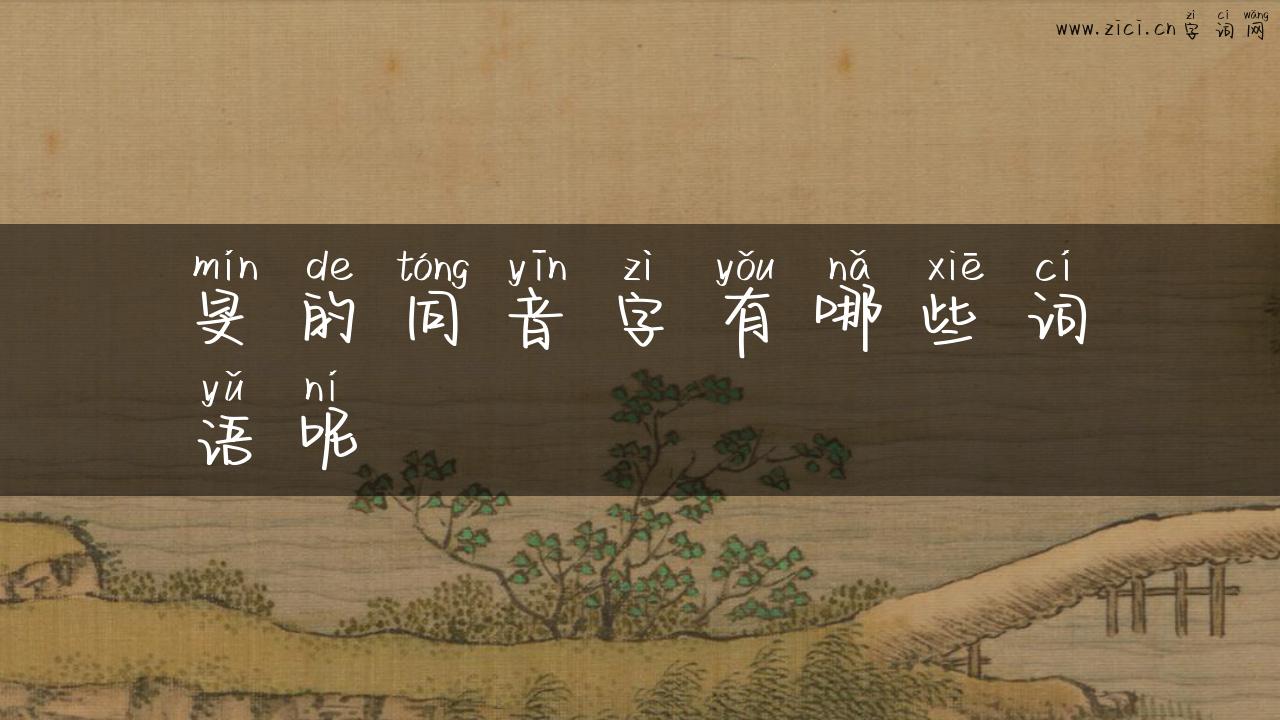 zì cí wǎng
www.zici.cn 字词网
mín de tóng yīn zì yǒu nǎ xiē cí
旻的同音字有哪些词
yǔ ní
语呢